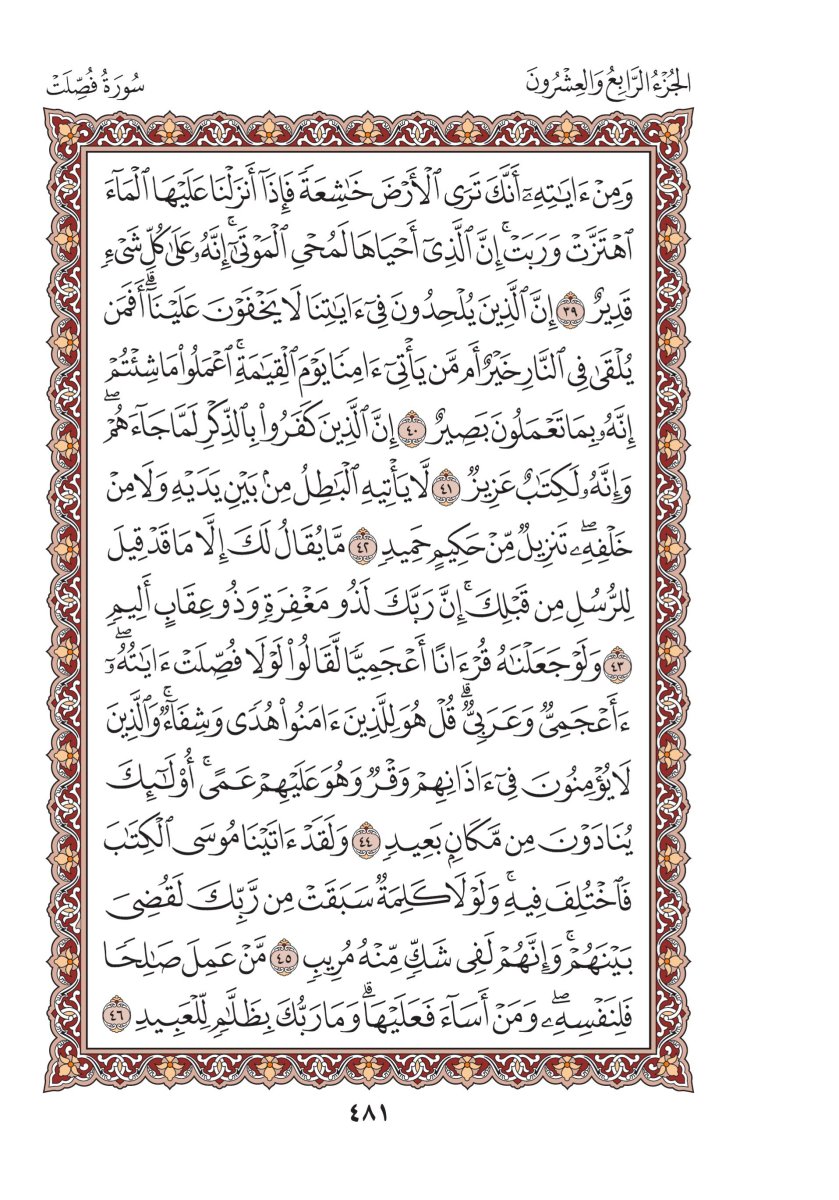 الجُزْءُ الرَّابِعُ وَالعِشْرُونَ
سُورَةُ فُصِّلَتْ
وَمِنْ ءَايَٰتِهِۦٓ أَنَّكَ تَرَى ٱلْأَرْضَ خَٰشِعَةً فَإِذَآ أَنزَلْنَا عَلَيْهَا ٱلْمَآءَ
ٱهْتَزَّتْ وَرَبَتْ ۚ إِنَّ ٱلَّذِىٓ أَحْيَاهَا لَمُحْىِ ٱلْمَوْتَىٰٓ ۚ إِنَّهُۥ عَلَىٰ كُلِّ شَىْءٍ
قَدِيرٌ ٣٩ إِنَّ ٱلَّذِينَ يُلْحِدُونَ فِىٓ ءَايَٰتِنَا لَا يَخْفَوْنَ عَلَيْنَآ ۗ أَفَمَن
يُلْقَىٰ فِى ٱلنَّارِ خَيْرٌ أَم مَّن يَأْتِىٓ ءَامِنًا يَوْمَ ٱلْقِيَٰمَةِ ۚ ٱعْمَلُوا۟ مَا شِئْتُمْ ۖ
إِنَّهُۥ بِمَا تَعْمَلُونَ بَصِيرٌ ٤٠ إِنَّ ٱلَّذِينَ كَفَرُوا۟ بِٱلذِّكْرِ لَمَّا جَآءَهُمْ ۖ
وَإِنَّهُۥ لَكِتَٰبٌ عَزِيزٌ ٤١ لَّا يَأْتِيهِ ٱلْبَٰطِلُ مِنۢ بَيْنِ يَدَيْهِ وَلَا مِنْ
خَلْفِهِۦ ۖ تَنزِيلٌ مِّنْ حَكِيمٍ حَمِيدٍ ٤٢ مَّا يُقَالُ لَكَ إِلَّا مَا قَدْ قِيلَ
لِلرُّسُلِ مِن قَبْلِكَ ۚ إِنَّ رَبَّكَ لَذُو مَغْفِرَةٍ وَذُو عِقَابٍ أَلِيمٍ
٤٣ وَلَوْ جَعَلْنَٰهُ قُرْءَانًا أَعْجَمِيًّا لَّقَالُوا۟ لَوْلَا فُصِّلَتْ ءَايَٰتُهُۥٓ ۖ
ءَا۬عْجَمِىٌّ وَعَرَبِىٌّ ۗ قُلْ هُوَ لِلَّذِينَ ءَامَنُوا۟ هُدًى وَشِفَآءٌ ۖ وَٱلَّذِينَ
لَا يُؤْمِنُونَ فِىٓ ءَاذَانِهِمْ وَقْرٌ وَهُوَ عَلَيْهِمْ عَمًى ۚ أُو۟لَٰٓئِكَ
يُنَادَوْنَ مِن مَّكَانٍۭ بَعِيدٍ ٤٤ وَلَقَدْ ءَاتَيْنَا مُوسَى ٱلْكِتَٰبَ
فَٱخْتُلِفَ فِيهِ ۚ وَلَوْلَا كَلِمَةٌ سَبَقَتْ مِن رَّبِّكَ لَقُضِىَ
بَيْنَهُمْ ۚ وَإِنَّهُمْ لَفِى شَكٍّ مِّنْهُ مُرِيبٍ ٤٥ مَّنْ عَمِلَ صَٰلِحًا
فَلِنَفْسِهِۦ ۖ وَمَنْ أَسَآءَ فَعَلَيْهَا ۗ وَمَا رَبُّكَ بِظَلَّٰمٍ لِّلْعَبِيدِ ٤٦
٤٨١